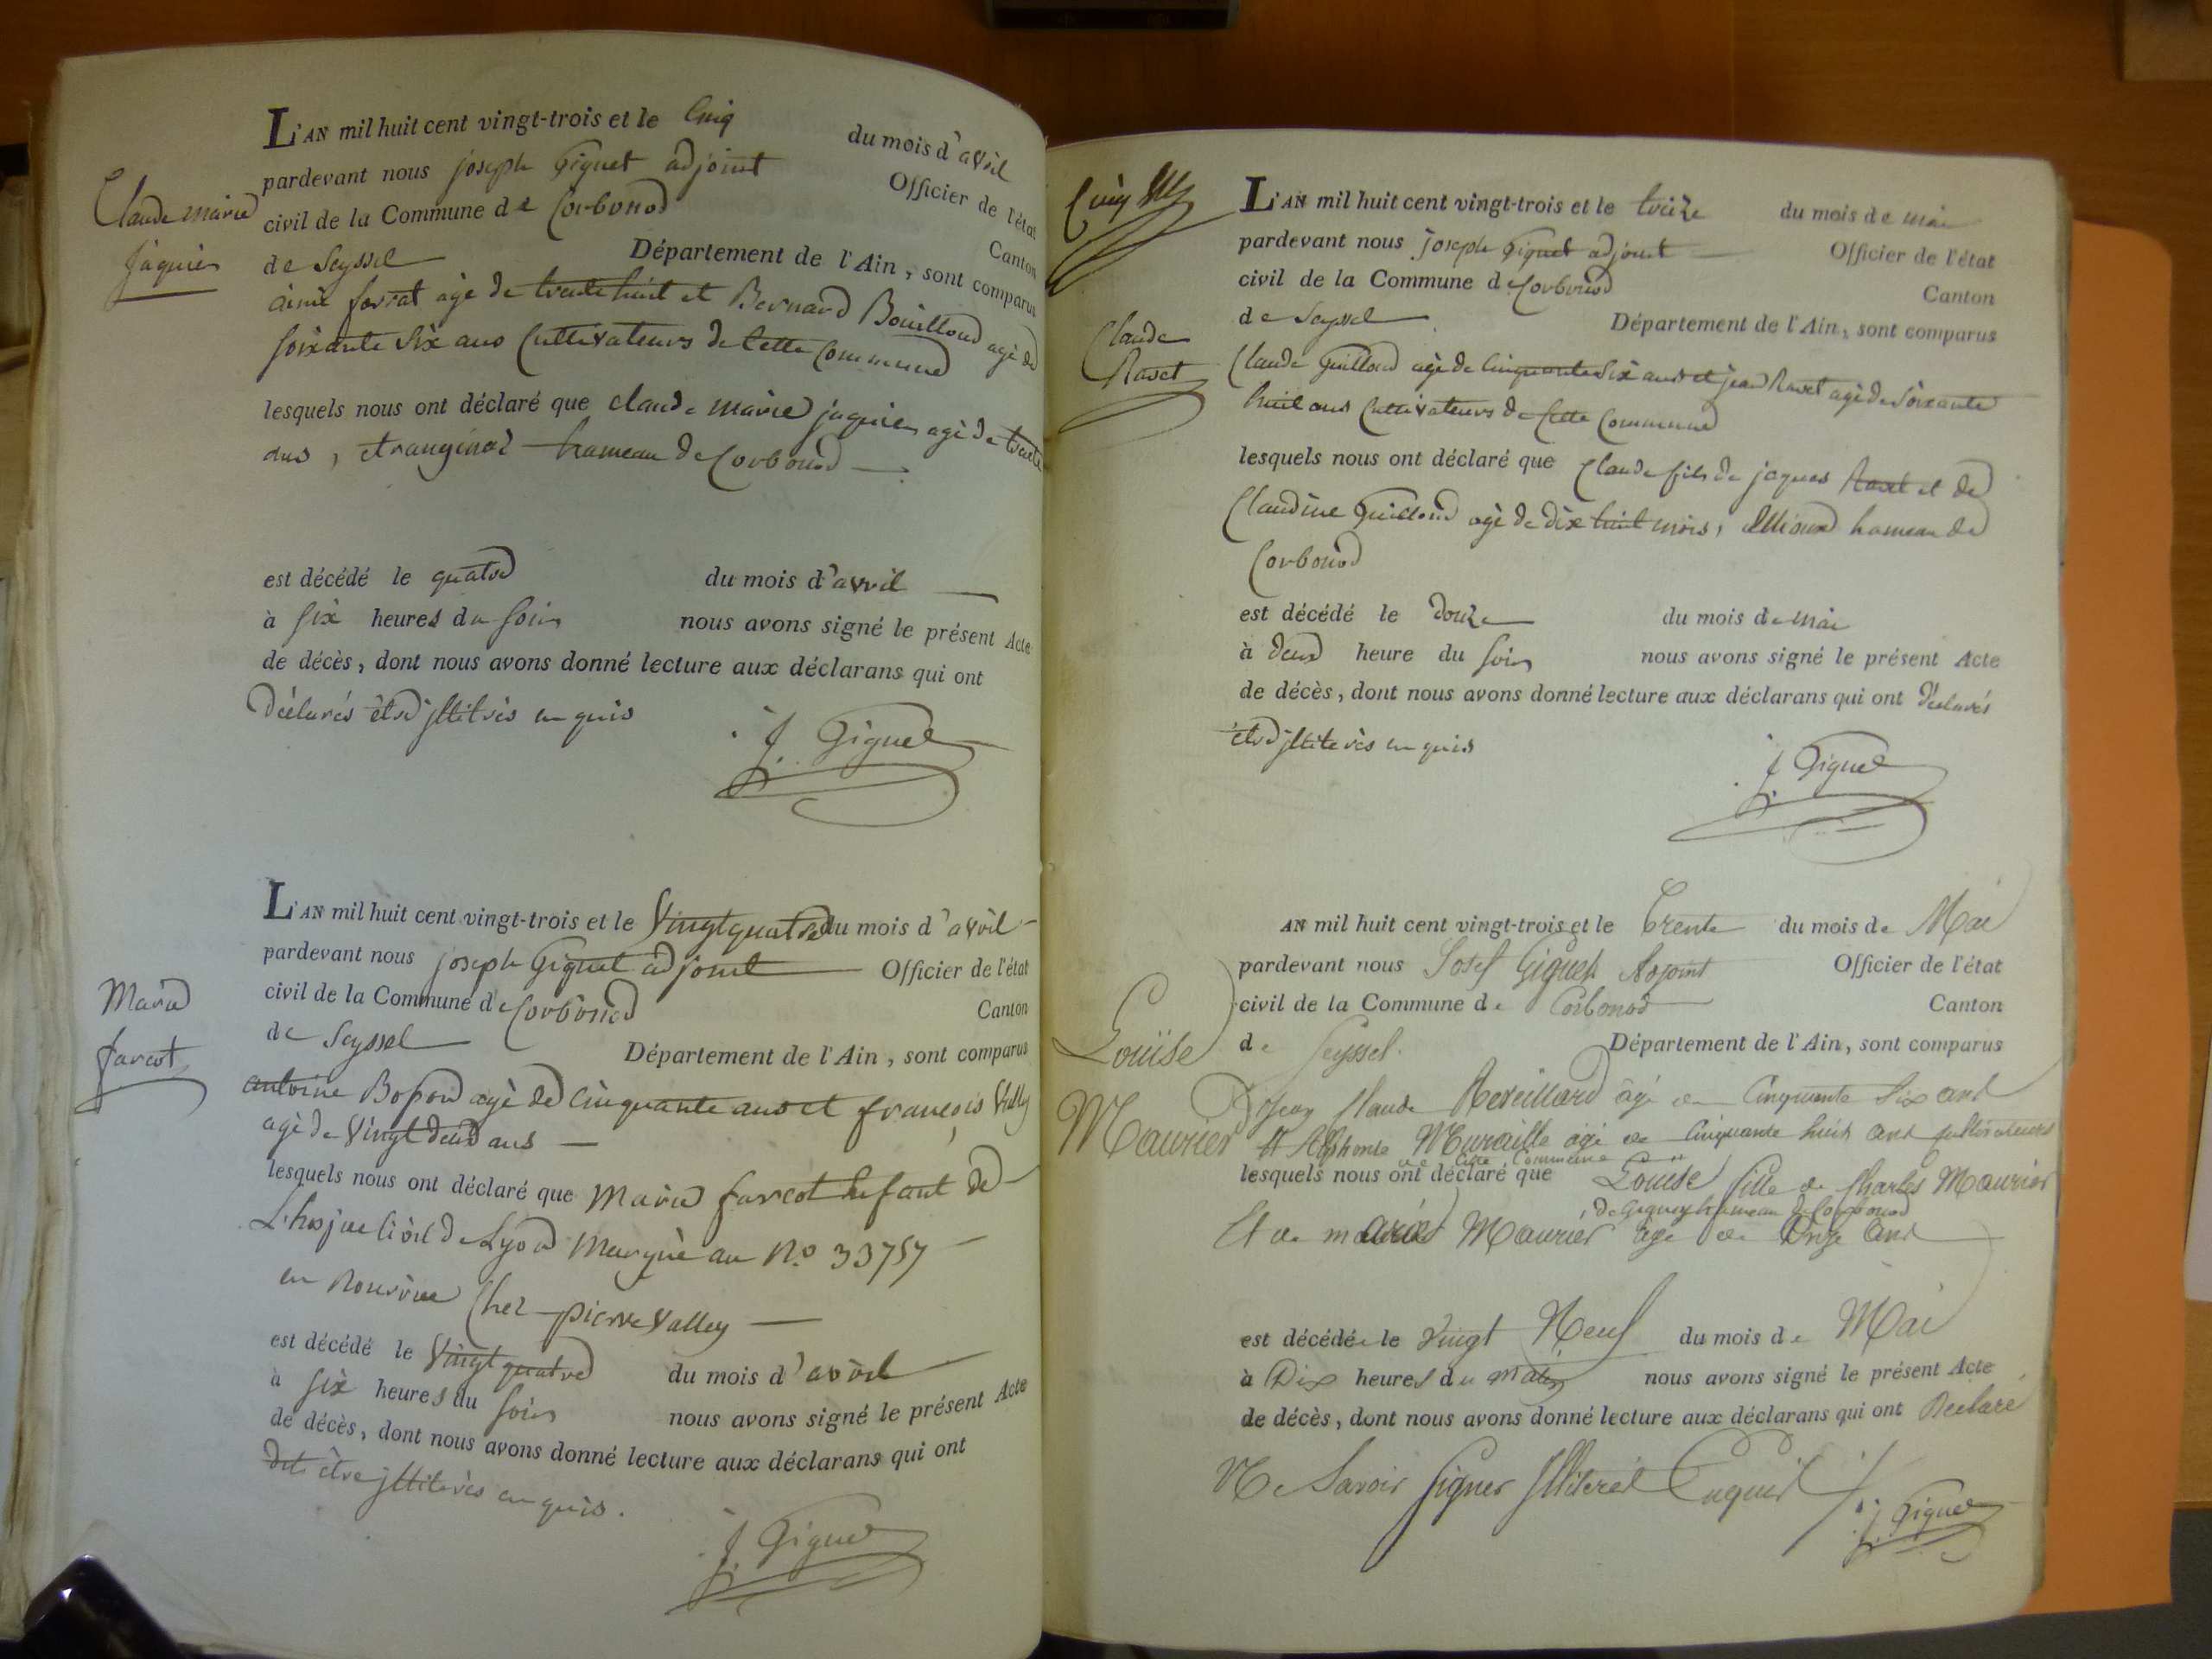 L'AN mil huit cent vingt-trois et le Cinq du mois d'avril
pardevant nous joseph Giguet adjoint Officier de l'état
civil de la Commune de Corbonod Canton
de Seyssel Département de l'Ain, sont comparus
Claude marie
jaquier
aimé forrat agé de trente huit et Bernard Bouilloud agé de
soixante Six ans Cultivateurs de Cette Commune
lesquels nous ont déclaré que claude marie jaquier agé de trente
ans, hameau de Corbonod
est décédé le quatre du mois d'avril
à Six heures du soir nous avons signé le présent Acte
de décès, dont nous avons donné lecture aux déclarans qui ont
déclarés être jllitrés enquis
J. Giguet
L'AN mil huit cent vingt-trois et le Vingt quatre du mois d'avril
pardevant nous joseph Giguet adjoint Officier de l'état
civil de la Commune de Corbonod Canton
de Seyssel Département de l'Ain, sont comparus
Marie
farcot
antoine agé de Cinquante ans et françois Vally
agé de Vingt deux ans
lesquels nous ont déclaré que Marie farcot de
Lyon au N.o 33757
en Chez pierre Valley
est décédé le Vingt quatre du mois d'avril
à Six heures du soir nous avons signé le présent Acte
de décès, dont nous avons donné lecture aux déclarans qui ont
dits être jllitérés enquis.
J. Giguet
L'AN mil huit cent vingt-trois et le treize du mois de mai
pardevant nous joseph Giguet adjoint Officier de l'état
civil de la Commune de Corbonod Canton
de Seyssel Département de l'Ain, sont comparus
Claude
Ravet
Claude Guilloud agé de Cinquante Six ans et jean Ravet agé de Soixante
huit ans Cultivateurs de Cette Commune
lesquels nous ont déclaré que Claude fils de jaques Ravet et de
Claudine Guilloud agé de dix huit mois, hameau de
Corbonod
est décédé le douze du mois de mai
à deux heure du soir nous avons signé le présent Acte
de décès, dont nous avons donné lecture aux déclarans qui ont déclarés
être jllitérés enquis
J. Giguet
AN mil huit cent vingt-trois et le trente du mois de Mai
pardevant nous Josef Giguet Adjoint Officier de l'état
civil de la Commune de Corbonod Canton
de Seyssel. Département de l'Ain, sont comparus
Louïse
Maurier
Jean Claude Reveillard âgé de Cinquante Six ans
Et Alphonse Muraille âgé de Cinquante huit ans
de Cette Commune
lesquels nous ont déclaré que Louïse fille de Charles Maurier
hameau de Corbonod
Et de Maurier âgé de Onze ans
est décédée le Vingt Neuf du mois de Mai
à Dix heures du matin nous avons signé le présent Acte
de décès, dont nous avons donné lecture aux déclarans qui ont Declaré
Ne Savoir Signer Enquis
J. Giguet